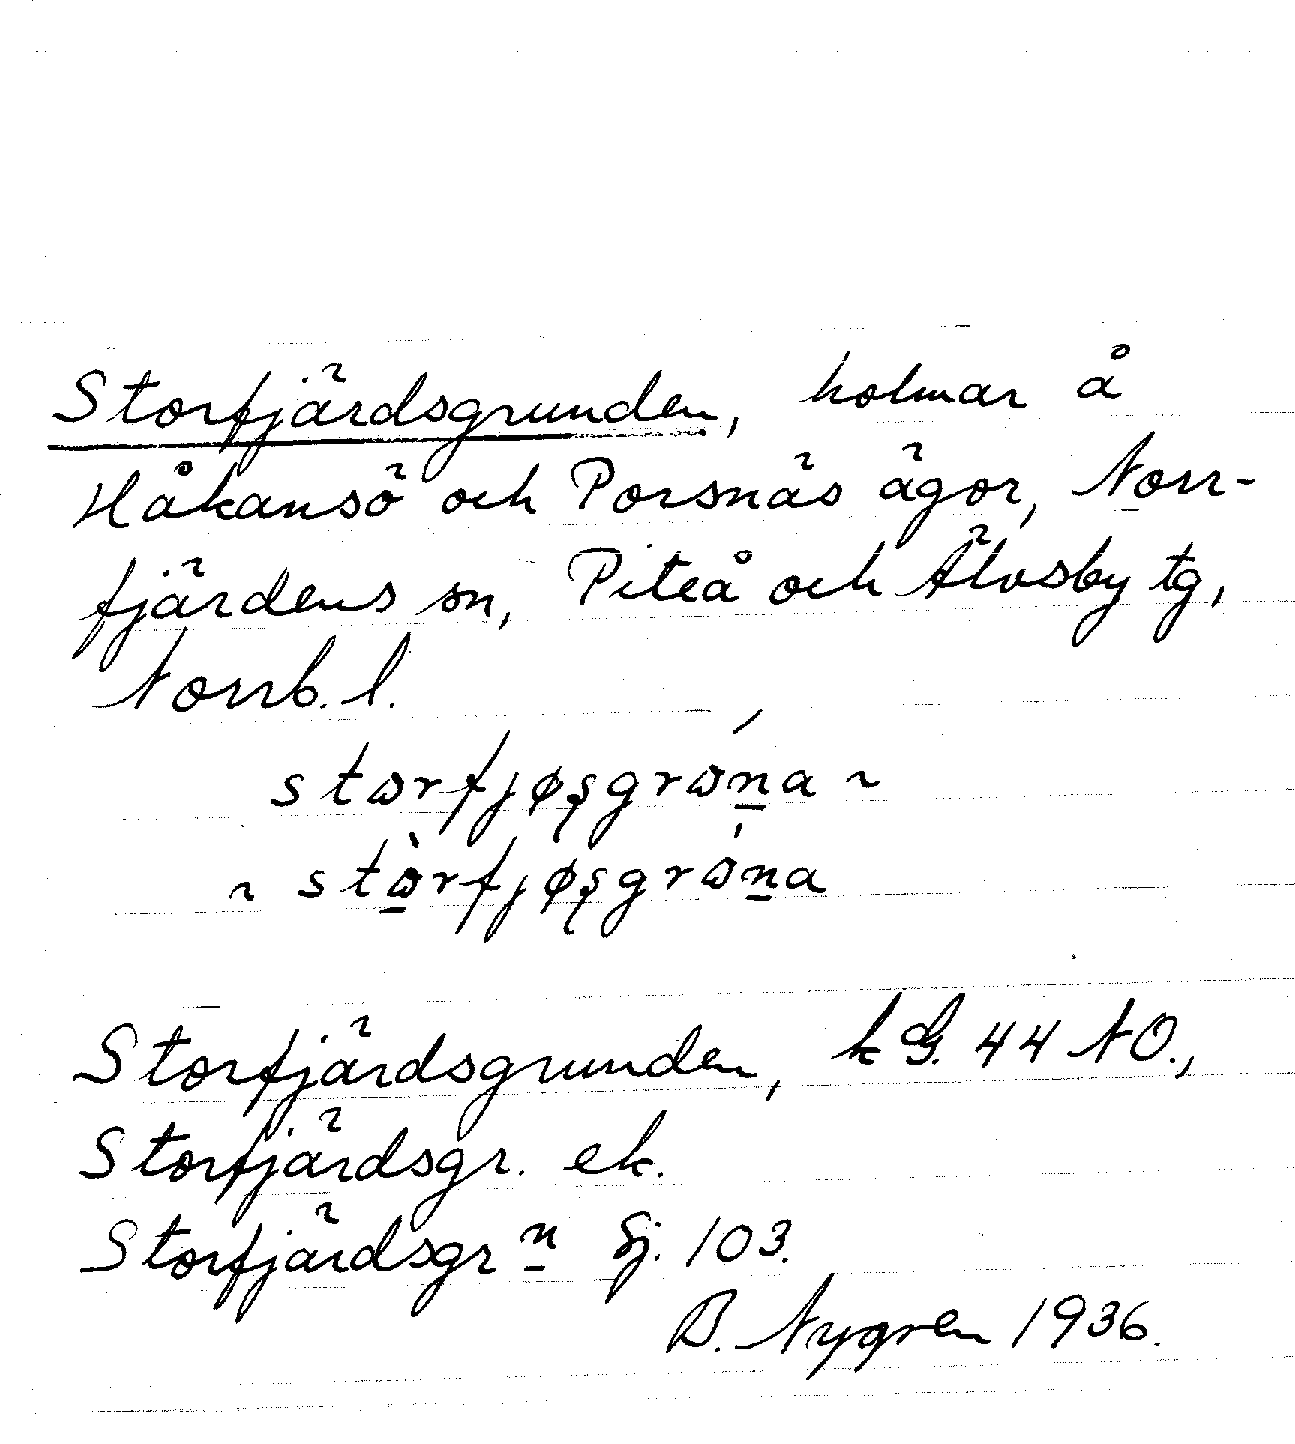 Storfjärdsgrunden, holmar å
Håkansö och Porsnäs ägor, Norr-
fjärdens sn, Piteå och Älvsby tg,
Norrb. l.
stɷrfjøʂgrɷ́n̲a ~
~ stɷ̲̀rfjøʂgrɷ́n̲a
Storfjärdsgrunden, k G. 44 NO.,
Storfjärdsgr. ek.
Storfjärdsgrn̲ Sj. 103.
B. Nygren 1936.